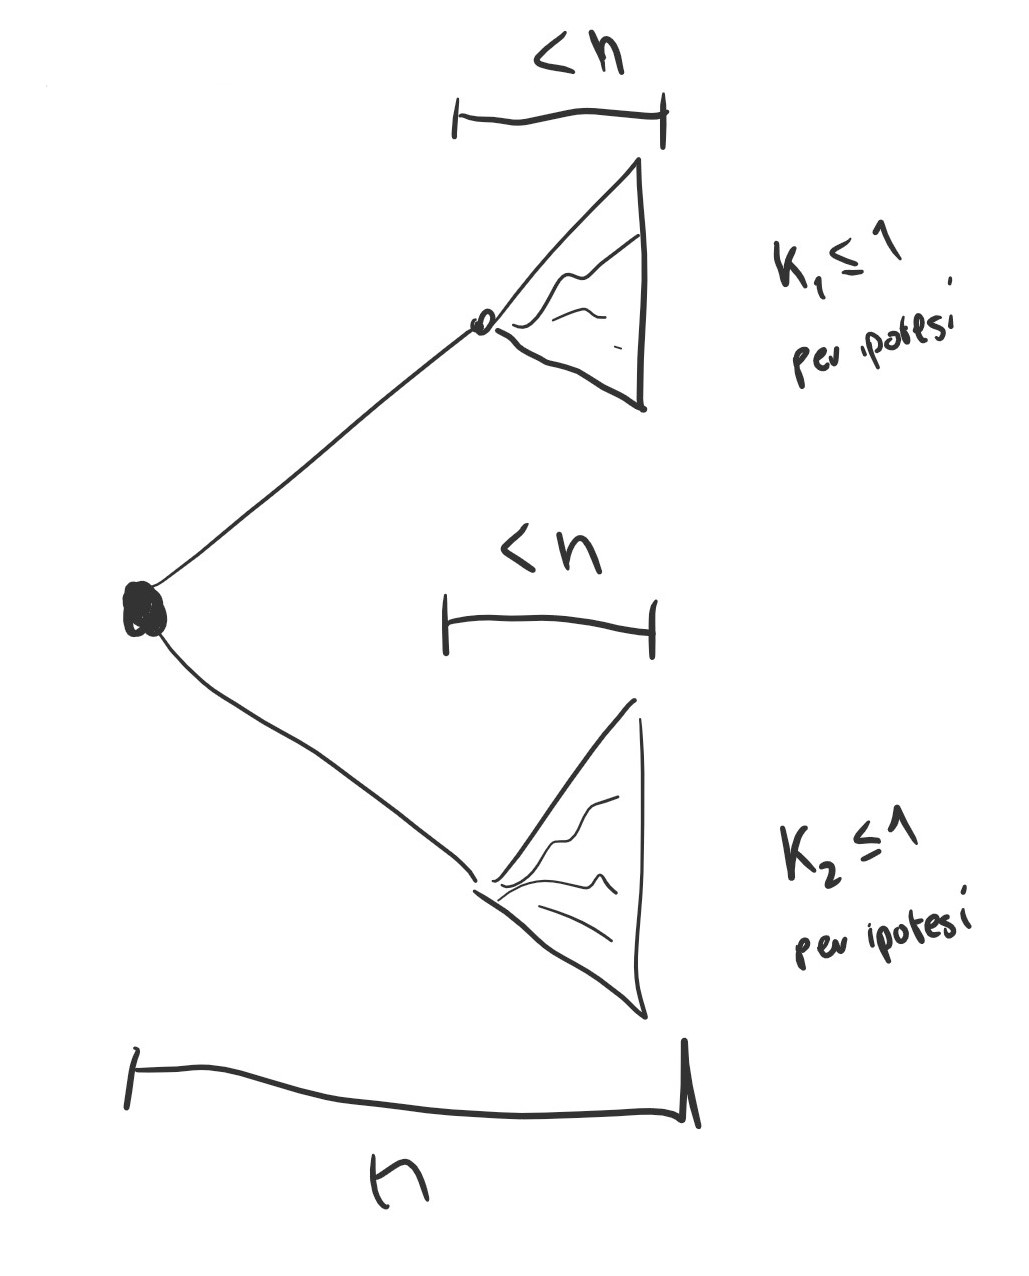 < n
K₁ ≤ 1
per ipotesi
< n
K₂ ≤ 1
per ipotesi
n